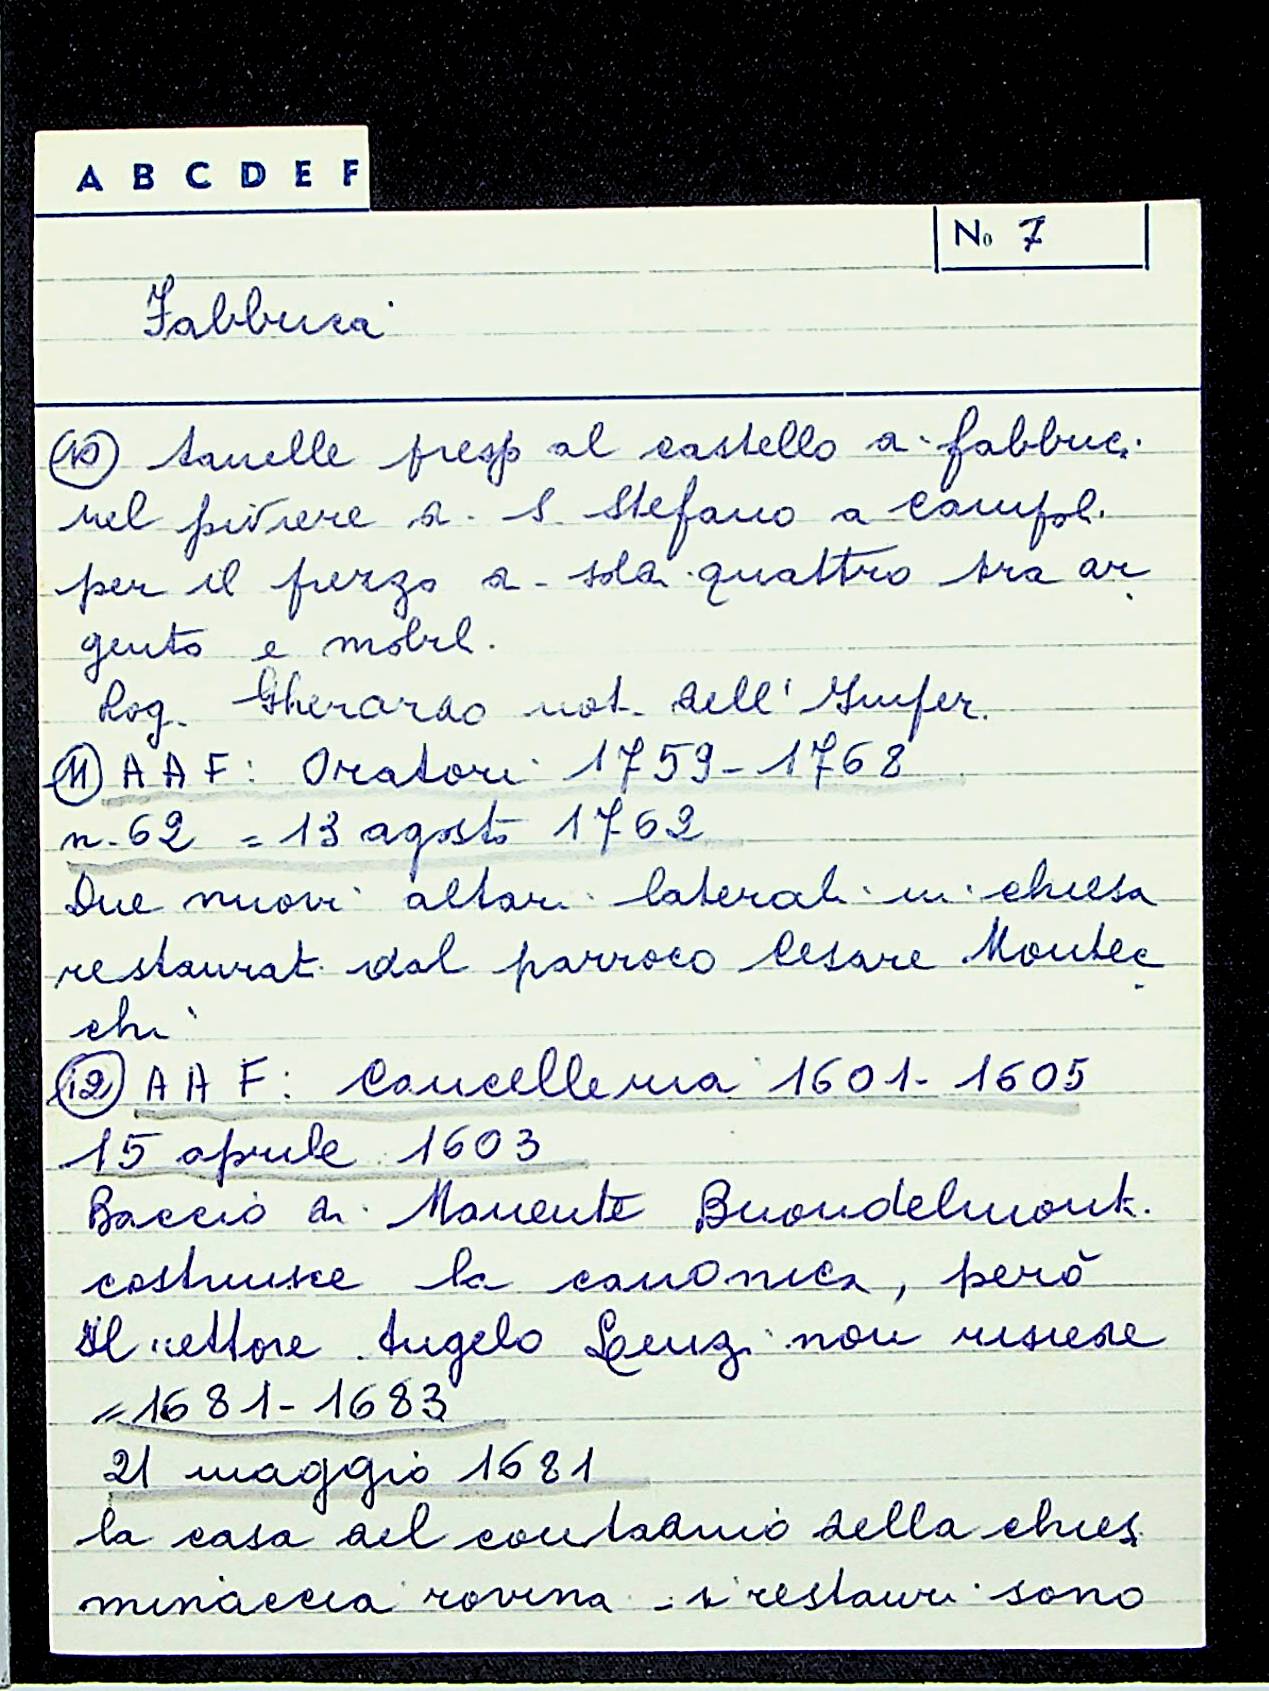 A B C D E F
No 7
Fabbrica
10 tavelle presp al castello di fabbric.
nel piviere di S. Stefano a Campol.
per il prezzo di soldi quattro tra ar
gento e mobil.
Rog. Gherardo not. dell' Imper.
11 A A F: Oratori 1759-1768
n. 62 = 13 agosto 1762
Due nuovi altari laterali in chiesa
restaurati dal parroco Cesare Montec
chi
12 A A F: Cancelleria 1601-1605
15 aprile 1603
Baccio di Manente Buondelmonti
costruisce la canonica, però
Il rettore Angelo Lenzi non risiede
=1681-1683
21 maggio 1681
la casa del contadino della chies.
minaccia rovina - i restauri sono